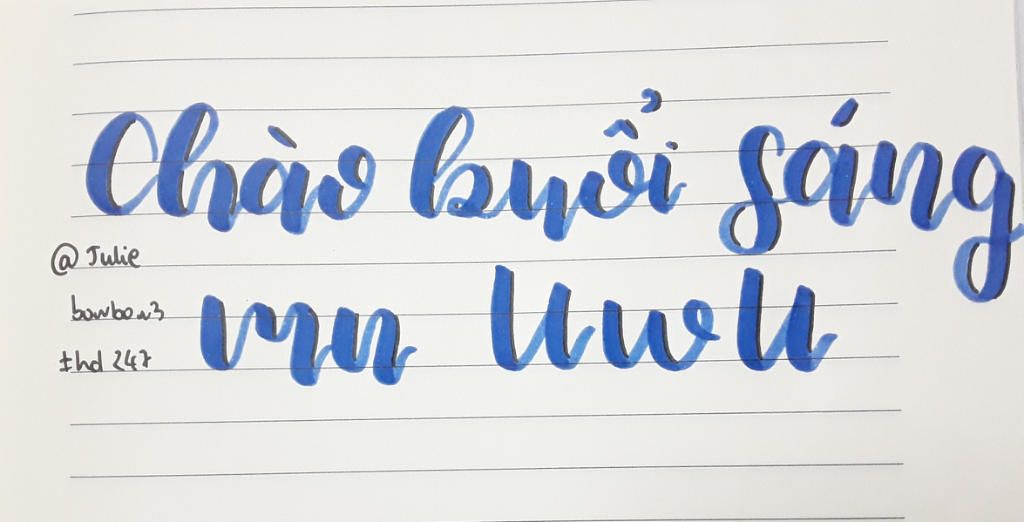 Chào buổi sáng
@ Julie
bowbow3
thd 247
mn UwU